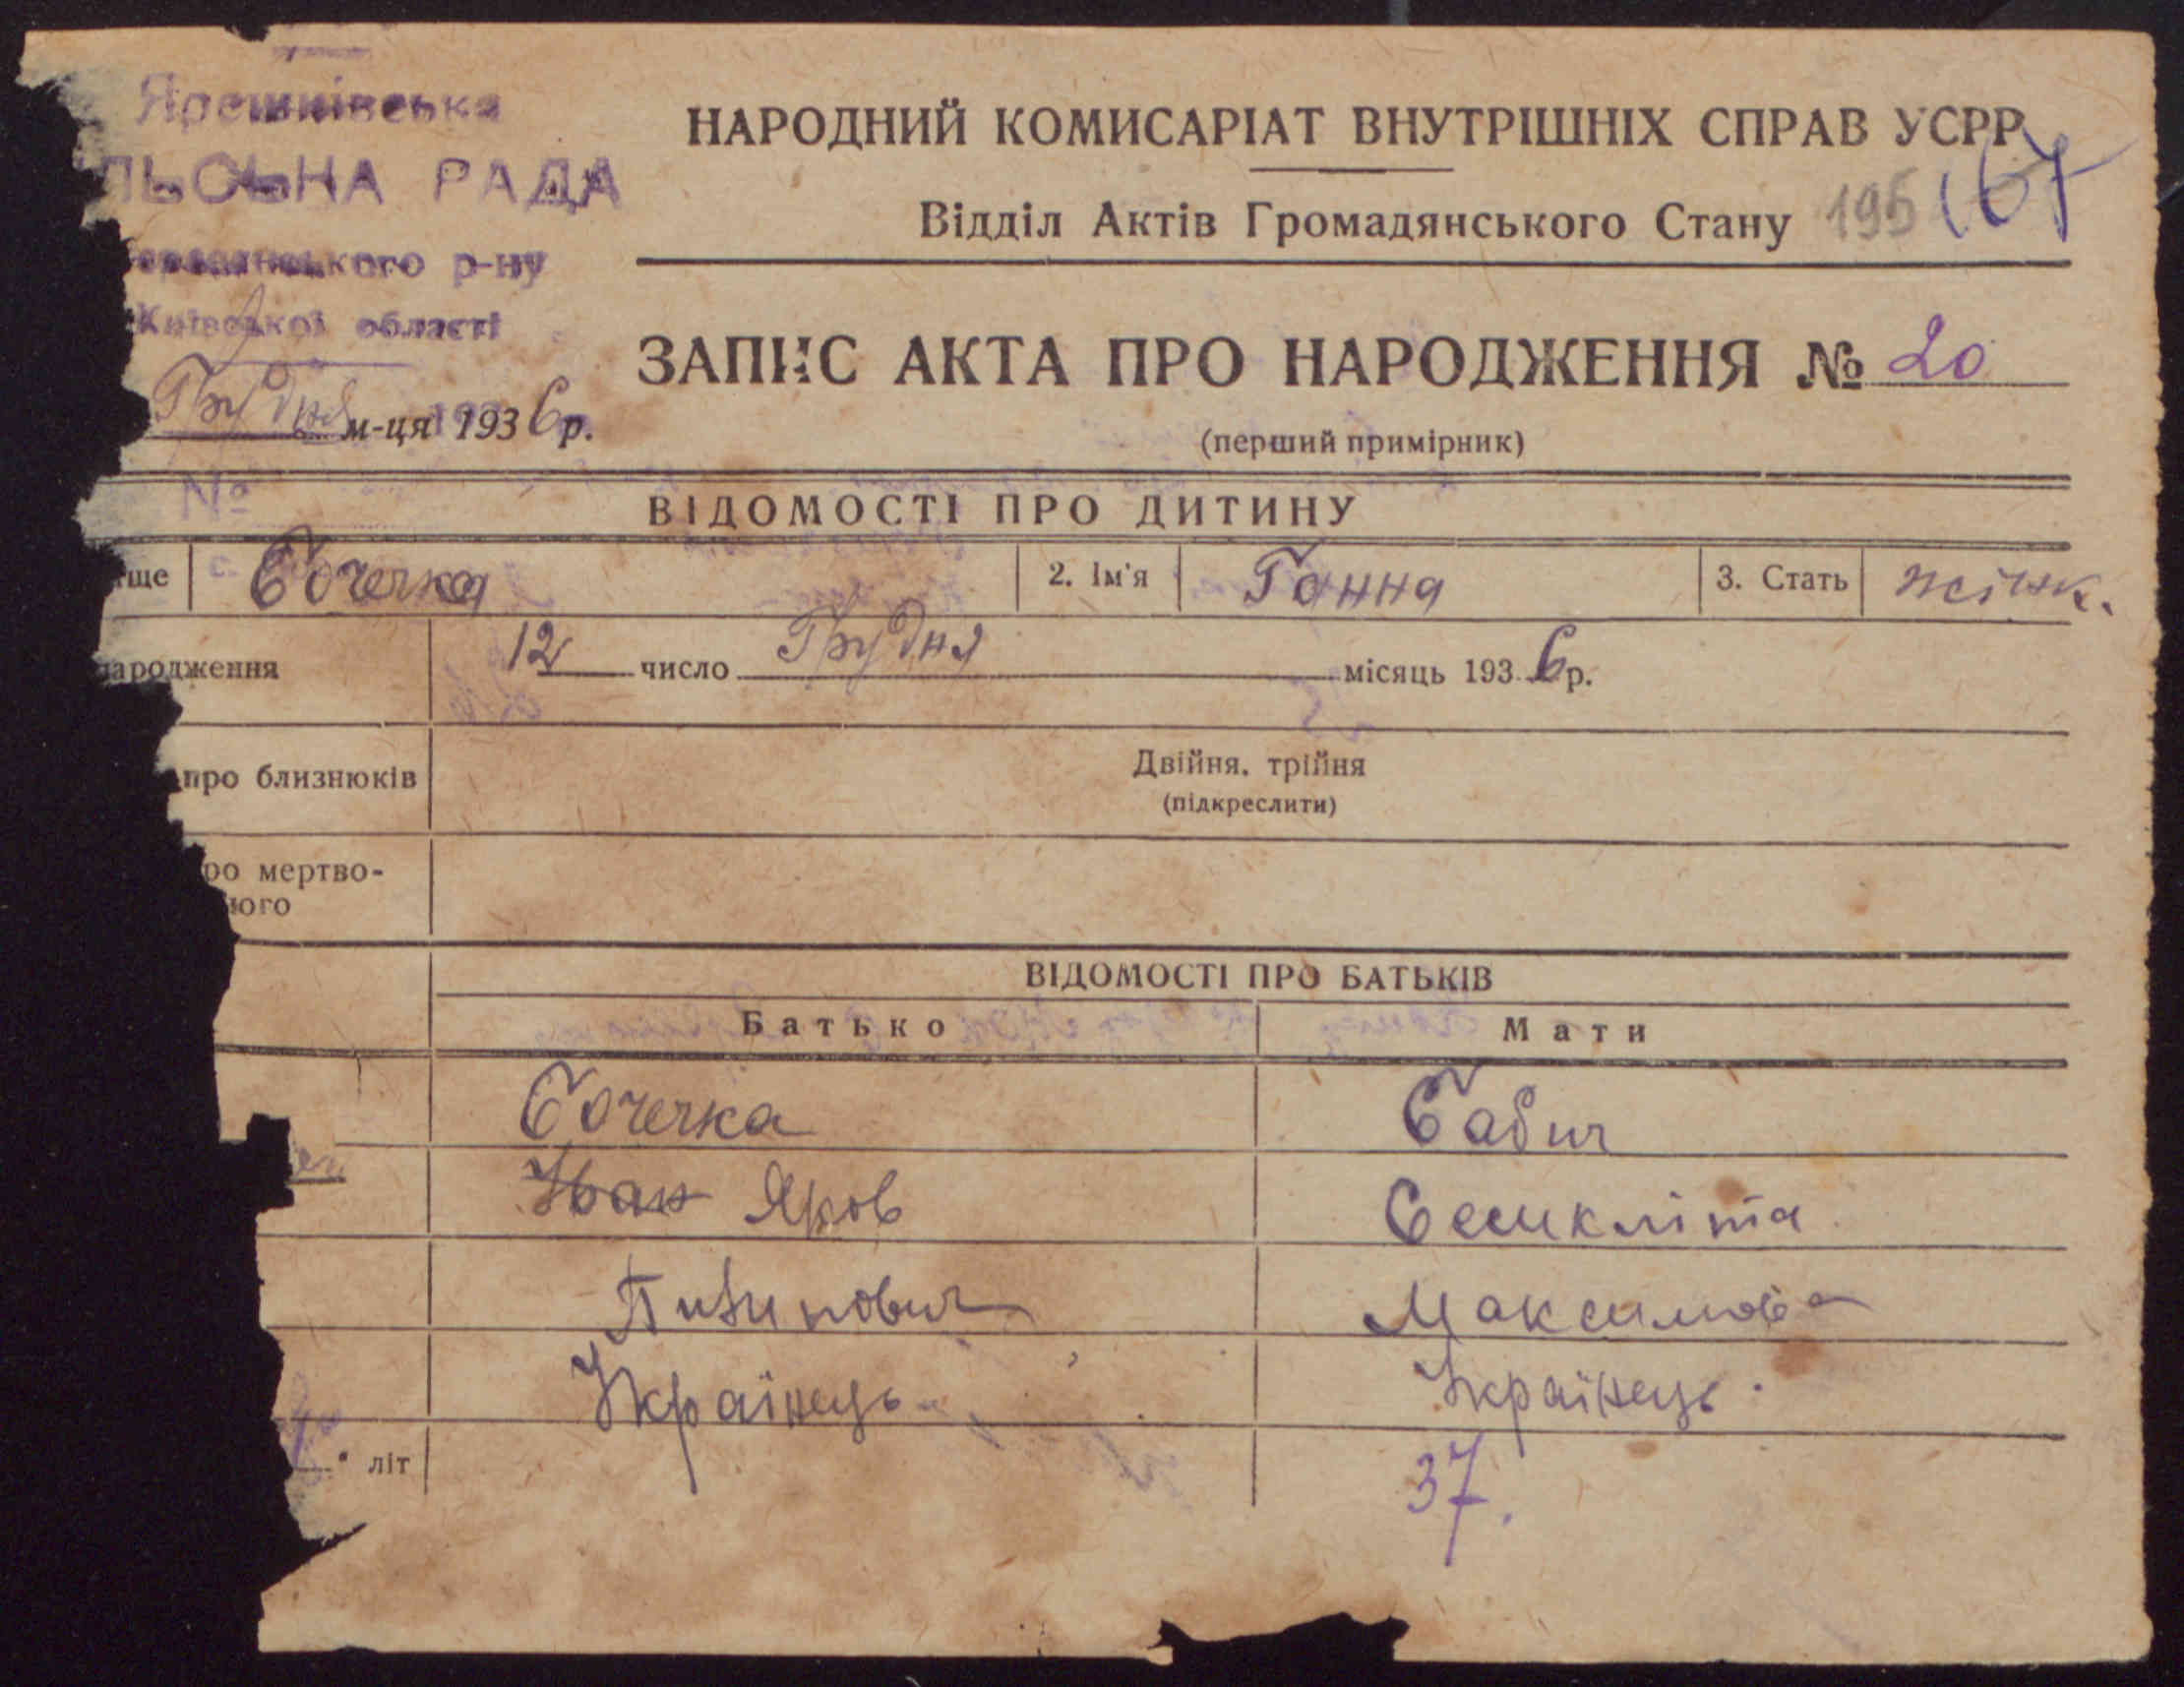 Ярешківська
ЛЬСЬНА РАДА
р-ну
Київської області
Грудня м-ця 1936 р.
№
НАРОДНИЙ КОМИСАРІАТ ВНУТРІШНІХ СПРАВ УСРР
Відділ Актів Громадянського Стану 195 167
ЗАПИС АКТА ПРО НАРОДЖЕННЯ № 20
(перший примірник)
ВІДОМОСТІ ПРО ДИТИНУ
ще Бочечка 2. Ім'я Ганна 3. Стать жінк.
народження 12 число Грудня місяць 1936 р.
про близнюків Двійня, трійня
(підкреслити)
ро мертво-
ного
ВІДОМОСТІ ПРО БАТЬКІВ
Батько Мати
Бочечка Бабич
Іван Яков Секликліта
Максимова
Українець Українець.
літ 37.